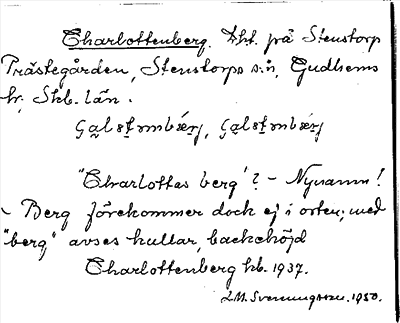 Charlottenberg. Lht. på Stenstorp
Prästegården, Stenstorps s:n, Gudhems
hr, Skb. län.
"Charlottas berg"? - Nynamn!
- Berg förekommer dock ej i orten; med
"berg" avses kullar, backehöjd
Charlottenberg kb. 1937.
1950.